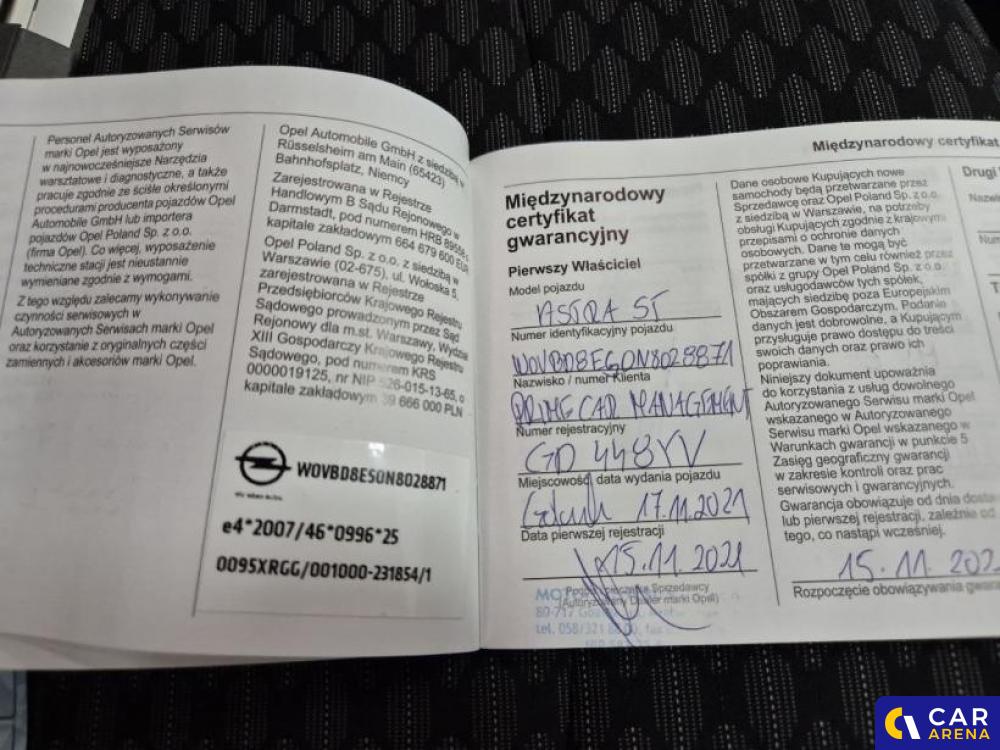 Personel Autoryzowanych Serwisów
marki Opel jest wyposażony
w najnowocześniejsze Narzędzia
warsztatowe i diagnostyczne, a także
pracuje zgodnie ze ściśle określonymi
procedurami producenta pojazdów Opel
Automobile GmbH lub importera
pojazdów Opel Poland Sp. z o.o.
(firma Opel). Co więcej, wyposażenie
techniczne stacji jest nieustannie
wymieniane zgodnie z wymogami.
Z tego względu zalecamy wykonywanie
czynności serwisowych w
Autoryzowanych Serwisach marki Opel
oraz korzystanie z oryginalnych części
zamiennych i akcesoriów marki Opel.
Opel Automobile GmbH z siedzibą w
Rüsselsheim am Main (65423)
Bahnhofsplatz, Niemcy
Zarejestrowana w Rejestrze
Handlowym B Sądu Rejonowego w
Darmstadt, pod numerem HRB 89558 z
kapitałe zakładowym 664 679 600 EUR
Opel Poland Sp. z o.o. z siedzibą w
Warszawie (02-675), ul. Wołoska 5,
zarejestrowana w Rejestrze
Przedsiębiorców Krajowego Rejestru
Sądowego prowadzonym przez Sąd
Rejonowy dla m.st. Warszawy, Wydział
XIII Gospodarczy Krajowego Rejestru
Sądowego, pod numerem KRS
0000019125, nr NIP 526-015-13-65, o
kapitałe zakładowym 39 666 000 PLN
W0VBD8ES0N8028871
e4*2007/46*0996*25
0095XRGG/001000-231854/1
Międzynarodowy certyfikat
Międzynarodowy
certyfikat
gwarancyjny
Pierwszy Właściciel
Model pojazdu
ASTRA ST
Numer identyfikacyjny pojazdu
W0VBD8EG0N8028871
Nazwisko / numer Klienta
PRIME CAR MANAGEMENT
Numer rejestracyjny
GD 448VV
Miejscowość, data wydania pojazdu
17.11.2021
Data pierwszej rejestracji
15.11.2021
Sprzedawcy
(Autoryzowany Dealer marki Opel)
80-717
tel. 058/321
Dane osobowe Kupujących nowe
samochody będą przetwarzane przez
Sprzedawcę oraz Opel Poland Sp. z o.o.
z siedzibą w Warszawie, na potrzeby
obsługi Kupujących zgodnie z krajowymi
przepisami o ochronie danych
osobowych. Dane te mogą być
przetwarzane w tym celu również przez
spółki z grupy Opel Poland Sp. z o.o.
oraz usługodawców tych spółek,
mających siedzibę poza Europejskim
Obszarem Gospodarczym. Podanie
danych jest dobrowolne, a Kupującym
przysługuje prawo dostępu do treści
swoich danych oraz prawo ich
poprawiania.
Niniejszy dokument upoważnia
do korzystania z usług dowolnego
Autoryzowanego Serwisu marki Opel
wskazanego w Autoryzowanego
Serwisu marki Opel wskazanego w
Warunkach gwarancji w punkcie 5
Zasięg geograficzny gwarancji
w zakresie kontroli oraz prac
serwisowych i gwarancyjnych.
Gwarancja obowiązuje od dnia dostawy
lub pierwszej rejestracji, zależnie od
tego, co nastąpi wcześniej.
15.11.202
Rozpoczęcie obowiązywania
Drugi
CAR
ARENA